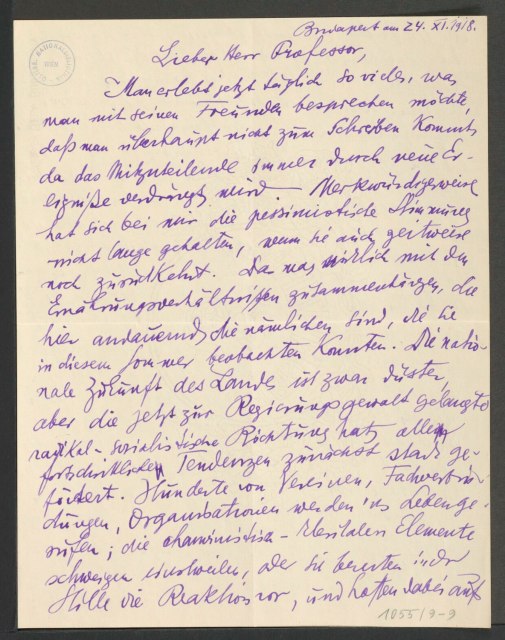 Budapest am 24. XI. 1918.
Lieber Herr Professor,
Man erlebt jetzt täglich so vieles, was
man mit seinen Freunden besprechen möchte,
daß man überhaupt nicht zum Schreiben kommt,
da das Mitzuteilende immer durch neue Er-
eigniße verdrängt wird — Merkwürdigerweise
hat sich bei mir die pessimistische Stimmung
nicht lange gehalten, wenn sie auch zeitweise
noch zurückkehrt. Da mag wirklich mit den
Ernährungsverhältnissen zusammenhängen, die
hier andauernd die nämlichen sind, die Sie
in diesem Sommer beobachten konnten. Die natio-
nale Zukunft des Landes ist zwar düster,
aber die jetzt zur Regierungsgewalt gelangte
radikal-sozialistische Richtung hat allen
fortschrittlichen Tendenzen zunächst stark ge-
fördert. Hunderte von Vereinen, Fachverbin-
dungen, Organisationen werden ins Leben ge-
rufen; die chauvinistisch-klerikalen Elemente
schweigen einstweilen, aber sie bereiten in der
Stille die Reaktion vor, und hoffen dabei auf
1055/9-9
WIEN